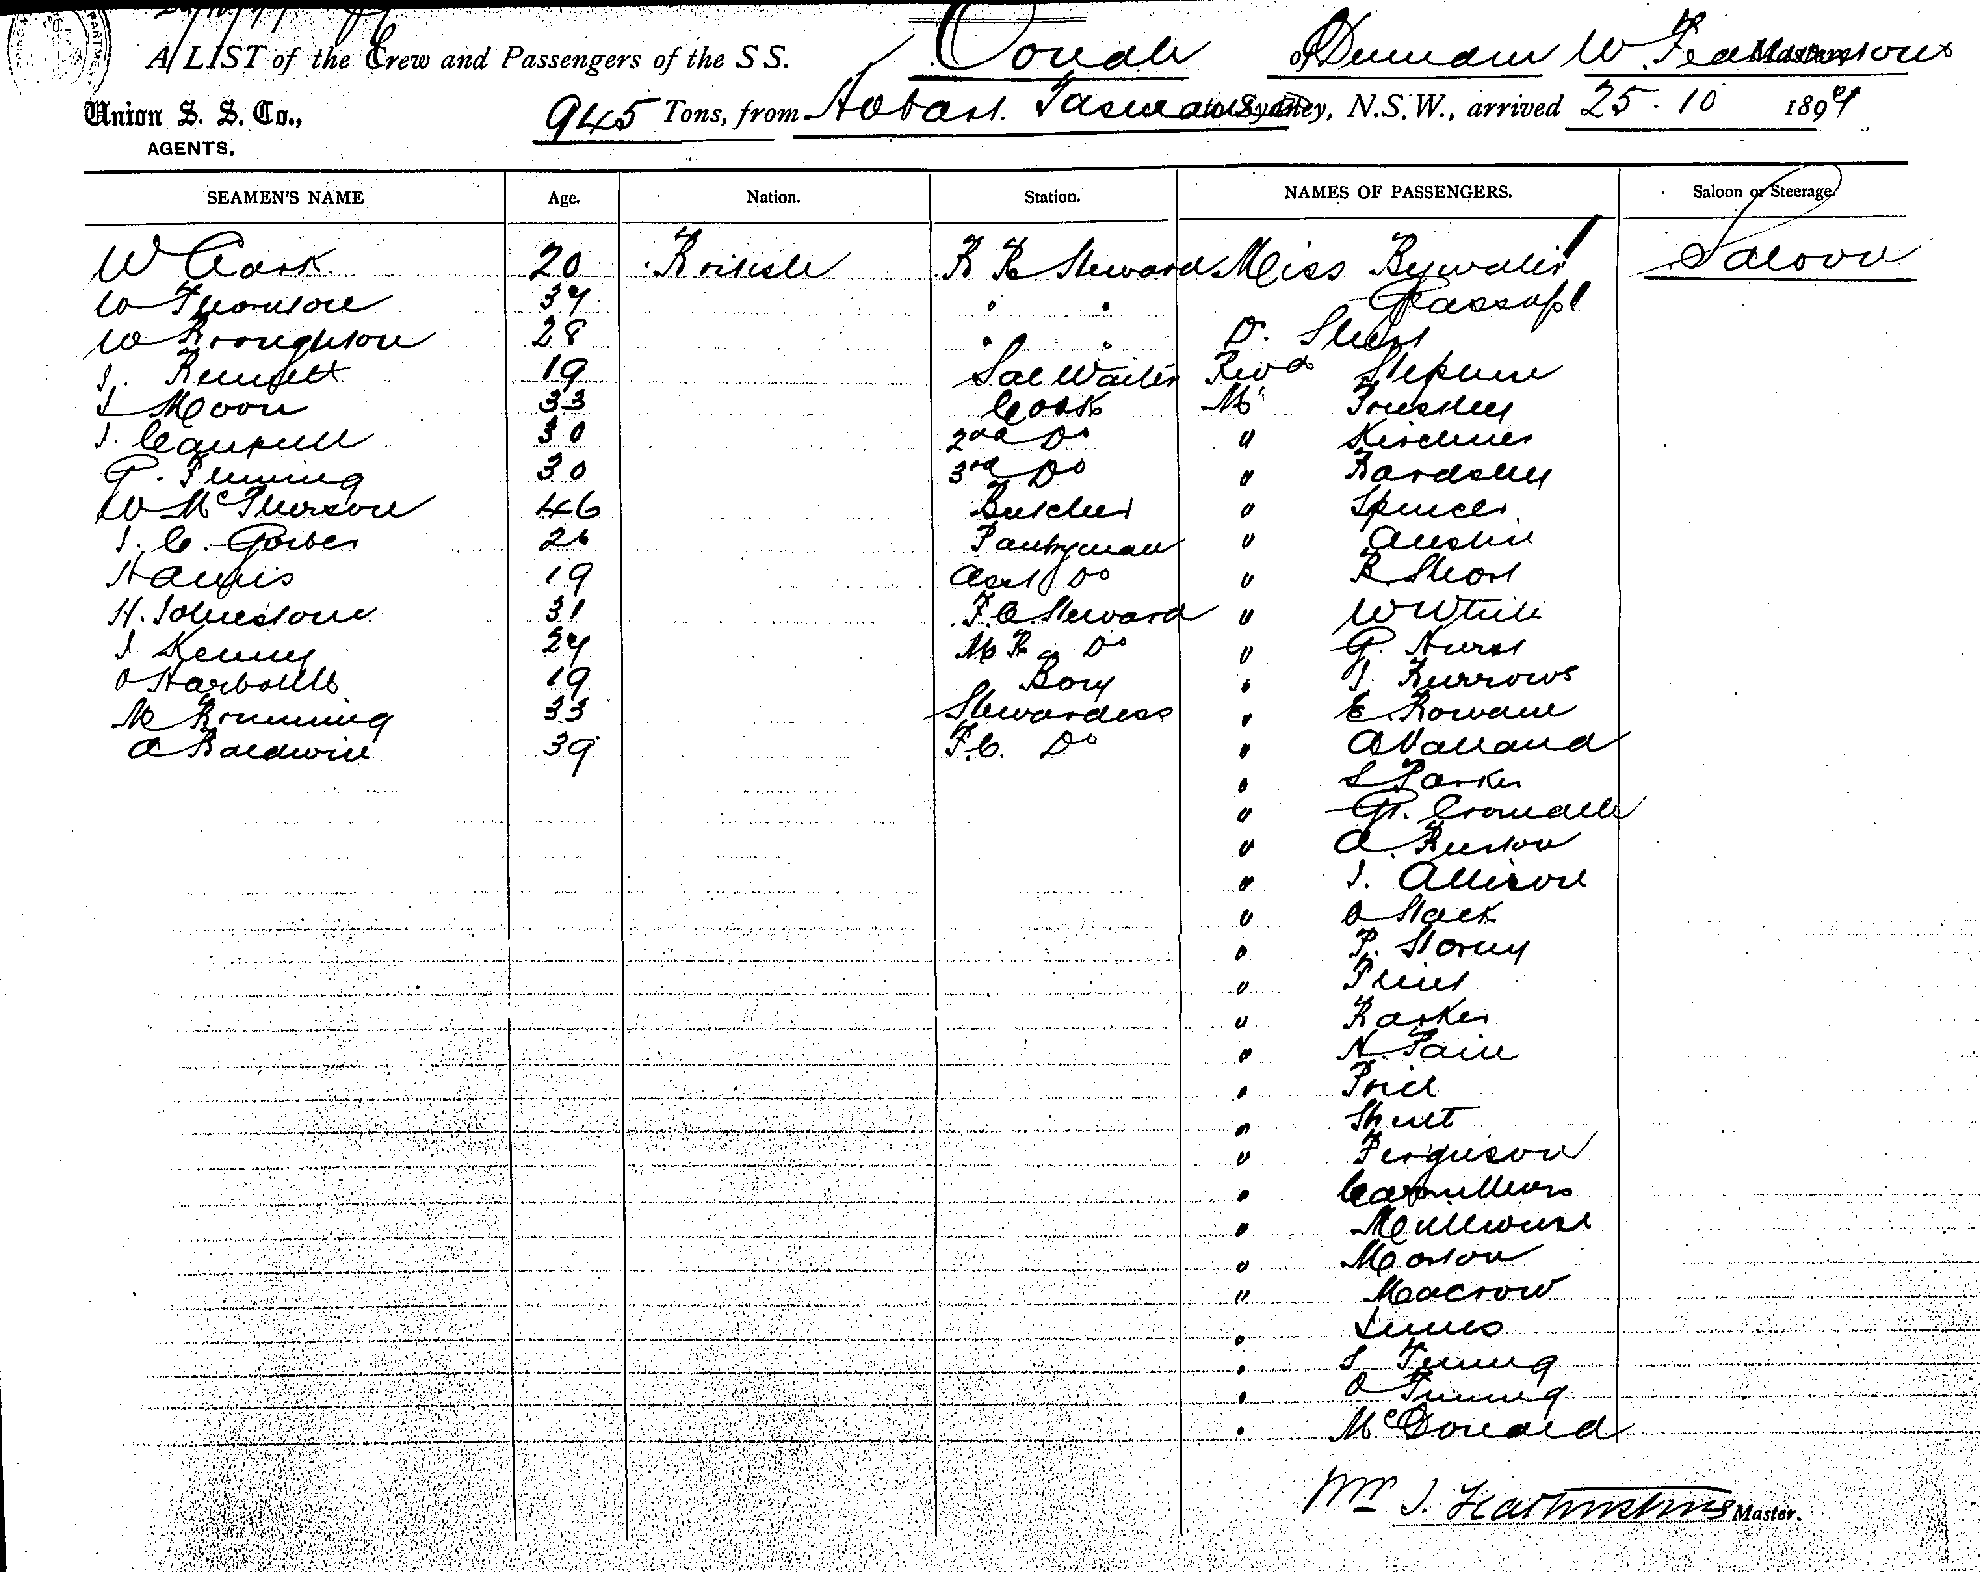 A LIST of the Crew and Passengers of the S S. Oonah of Dunedin W Featherstone Master
Union S. S. Co.,
AGENTS.
945 Tons, from Hobart Tasmania to Sydney, N.S.W., arrived 25.10 1897
SEAMEN'S NAME Age. Nation. Station. NAMES OF PASSENGERS. Saloon or Steerage
W Clark 20 British B R Steward Miss Bywater Saloon
W Thomson 37 " " Glassop
W Broughton 28 " " D. Short
J. Bennett 19 Sal Waiter Revd Stephen
J Moon 33 Cook Mr
J. Campbell 30 2nd Do " Kirchner
G. Fleming 30 3rd Do " Bardsley
W McPherson 46 Butcher " Spencer
J. C. 26 Pantryman " Austin
H Annis 19 Asst Do " R Short
H. Johnstone 31 F. C Steward " W White
J Kenny 27 M R Do " G. Hurst
19 Boy " J. Burrows
M Browning 33 Stewardess " E Rowan
A Baldwin 39 F. C. Do " A Valland
" S Parker
" G.
" A. Burton
" J. Allison
" O Slack
" P. Storey
"
" Barker
" N. Pain
" Price
" Shutt
" Ferguson
" Carruthers
" Millhouse
" Morton
" Macrow
"
" J
" A
" McDonald
Wm J. Featherstone Master.